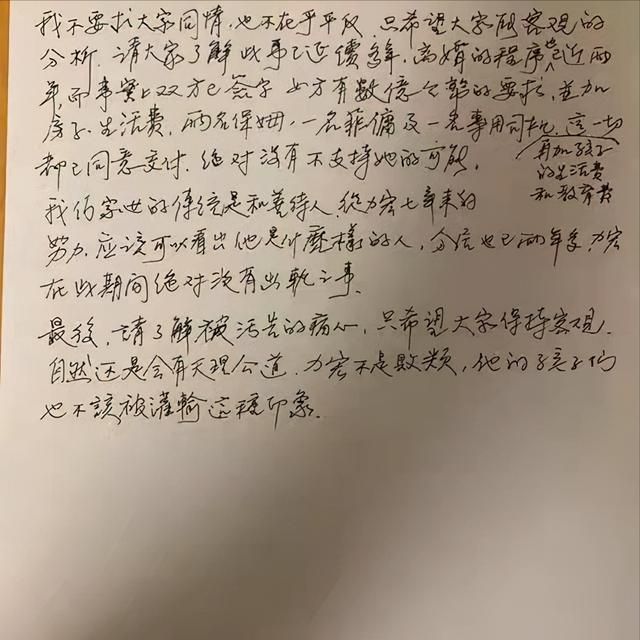 我不要求大家同情,也不在乎平反,只希望大家能客观的
分析.請大家了解此事已延續多年,离婚的程序也已近两
年,而事實上双方已簽字 女方有數億金額的要求,並加
房子.生活費,两名保姆,一名菲傭及一名專用司机.這一切
再加孩子
的生活费
和教育费
都已同意交付.绝对没有不支持她的可能.
我们家世的傳統是和善待人,從力宏七年来的
努力,應該可以看出他是什麼樣的人,分居也已两年多,力宏
在此期间绝对没有出軌之事.
最後,請了解被污告的痛心,只希望大家保持客观.
自然还是会有天理公道.力宏不是敗类,他的孩子们
也不該被灌輸這種印象.